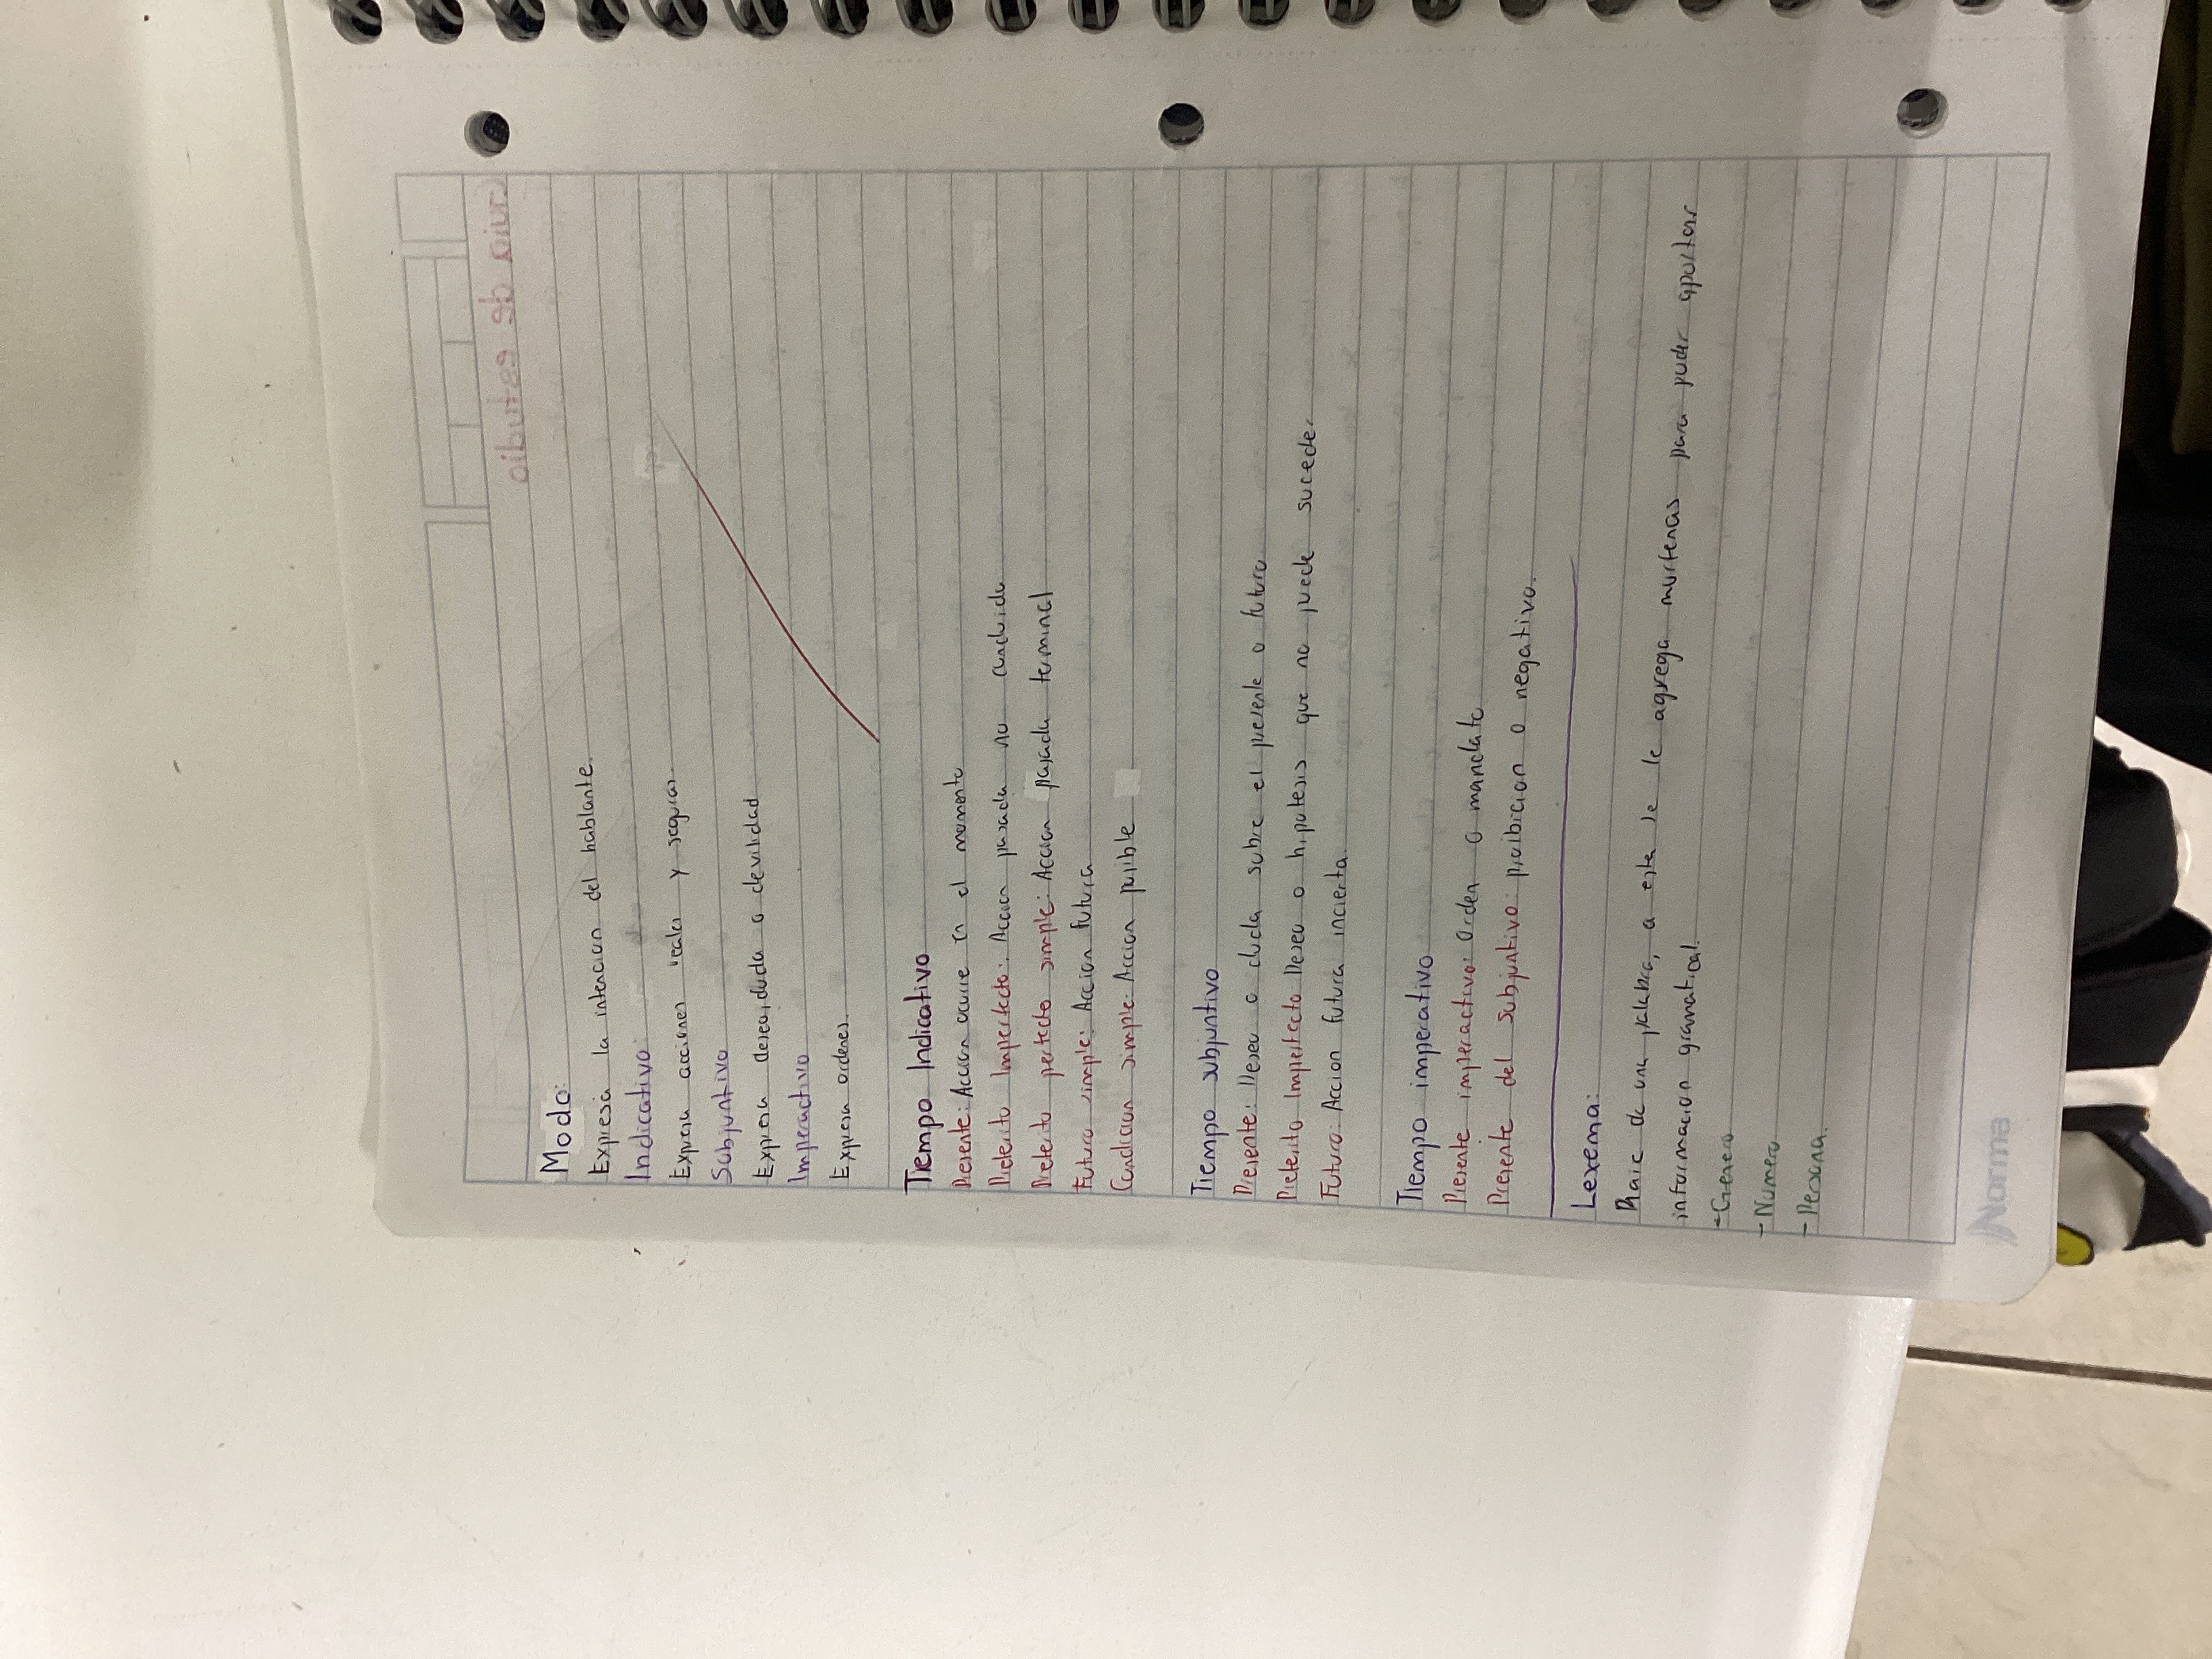 Modo:
Expresa la intencion del hablante.
Indicativo:
Expresa acciones reales y seguras.
Subjuntivo
Expresa deseo, duda o devilidad
Imperactivo
Expresa ordenes.
Tiempo Indicativo
Presente: Accion ocurre en el momento
Preterito Imperfecto: Accion pasada no concluida
Preterito perfecto simple: Accion pasada terminal
Futuro simple: Accion futura
Condicion simple: Accion posible
Tiempo subjuntivo
Presente: Deseo o duda sobre el presente o futuro
Preterito Imperfecto Deseo o hipotesis que no puede suceder
Futuro: Accion futura incierta.
Tiempo imperativo
Presente imperactivo: Orden o mandato
Presente del subjuntivo: proibicion o negativo.
Lexema:
Raíz de una palabra, a este se le agrega morfemas para poder aportar
informacion gramatical.
-Genero
-Numero
-Persona.
Norma
Guia de estudio